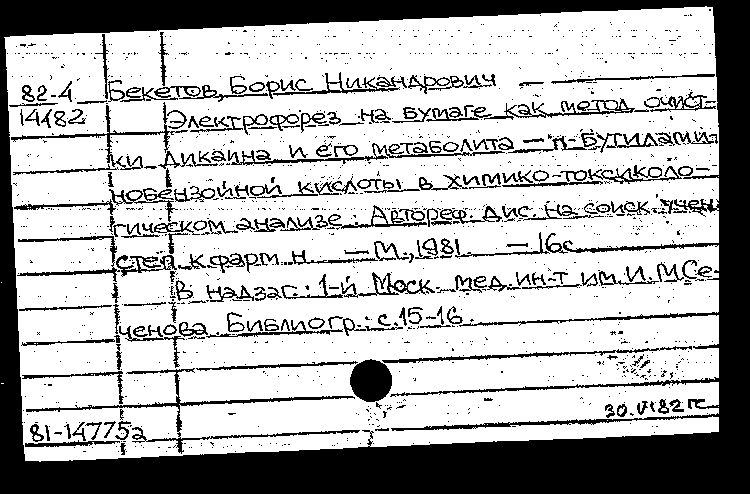 82-4 Бекетов, Борис Никандрович —
14482 Электрофорез на бумаге как метод очист-
ки дикаина и его метаболита — п-бутилами-
нобензойной кислоты в химико-токсиколо-
гическом анализе: Автореф. дис. на соиск. учен.
степ. к.фарм.н. — М., 1981. — 16с.
В надзаг.: 1-й Моск. мед. ин-т им. И.М.Се-
ченова. Библиогр.: с.15-16.
81-14775а
30.VI82